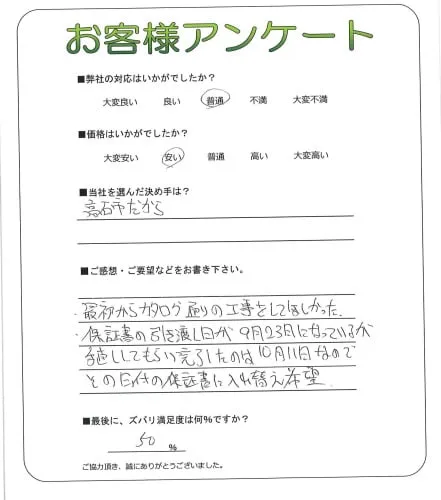 お客様アンケート
■弊社の対応はいかがでしたか?
大変良い 良い 普通 不満 大変不満
■価格はいかがでしたか?
大変安い 安い 普通 高い 大変高い
■当社を選んだ決め手は?
高石市だから
■ご感想・ご要望などをお書き下さい。
・最初からカタログ通りの工事をしてほしかった。
・保証書の引き渡し日が9月23日になっているが
してもらい完了したのは10月11日なので
その日付の保証書に入れ替え希望
■最後に、ズバリ満足度は何%ですか?
50 %
ご協力頂き、誠にありがとうございました。